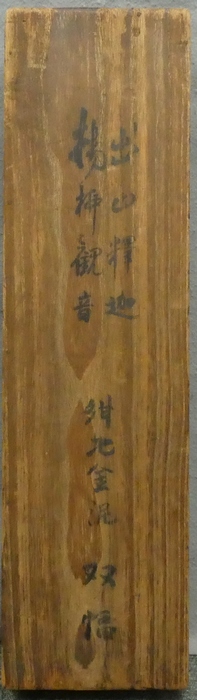 出山釋迦
楊柳觀音
紺地金泥
双幅